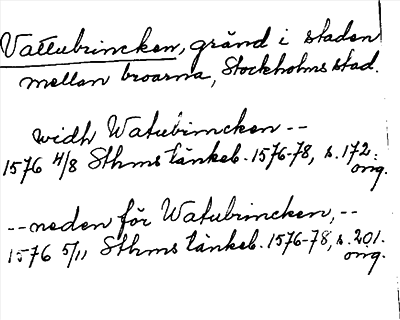 Vattubrincken, gränd i staden
mellan broarna, Stockholms stad.
widh Watubrincken --
1576 4/8 Sthms tänkeb. 1576-78, s. 172.
orig.
-- neden för Watubrincken, --
1576 5/11 Sthms tänkeb. 1576-78, s. 201.
orig.